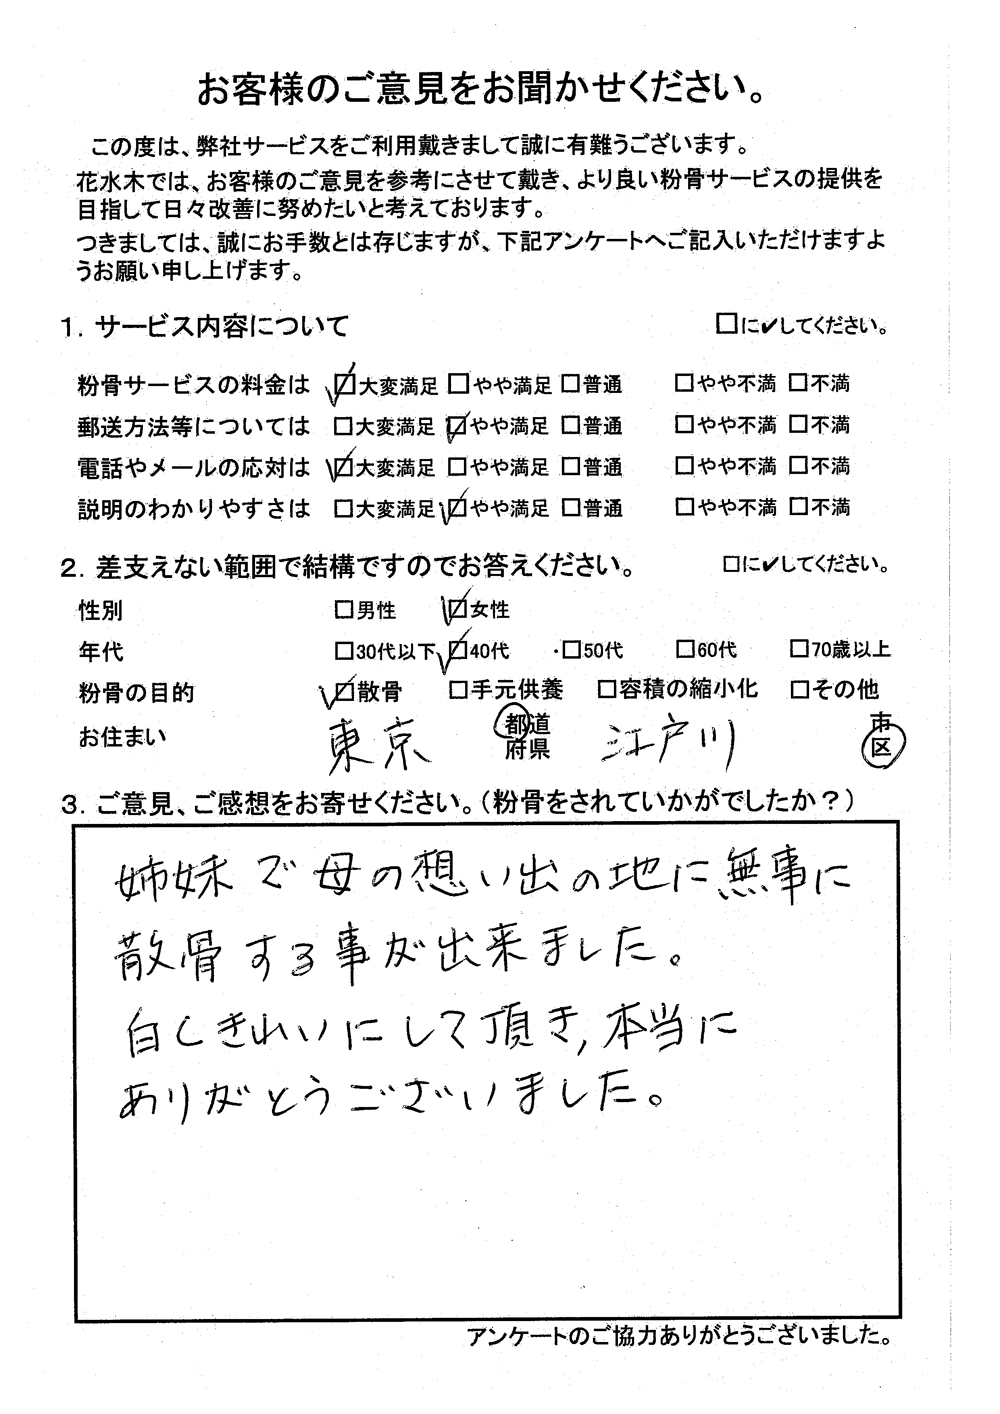 お客様のご意見をお聞かせください。
この度は、弊社サービスをご利用戴きまして誠に有難うございます。
花水木では、お客様のご意見を参考にさせて戴き、より良い粉骨サービスの提供を
目指して日々改善に努めたいと考えております。
つきましては、誠にお手数とは存じますが、下記アンケートへご記入いただけますよ
うお願い申し上げます。
1. サービス内容について □に✔してください。
粉骨サービスの料金は ☑大変満足 □やや満足 □普通 □やや不満 □不満
郵送方法等については □大変満足 ☑やや満足 □普通 □やや不満 □不満
電話やメールの応対は ☑大変満足 □やや満足 □普通 □やや不満 □不満
説明のわかりやすさは □大変満足 ☑やや満足 □普通 □やや不満 □不満
2. 差支えない範囲で結構ですのでお答えください。 □に✔してください。
性別 □男性 ☑女性
年代 □30代以下 ☑40代 □50代 □60代 □70歳以上
粉骨の目的 ☑散骨 □手元供養 □容積の縮小化 □その他
お住まい 東京 都道府県 江戸川 市区
3. ご意見、ご感想をお寄せください。（粉骨をされていかがでしたか？）
姉妹で母の想い出の地に無事に
散骨する事が出来ました。
白くきれいにして頂き,本当に
ありがとうございました。
アンケートのご協力ありがとうございました。